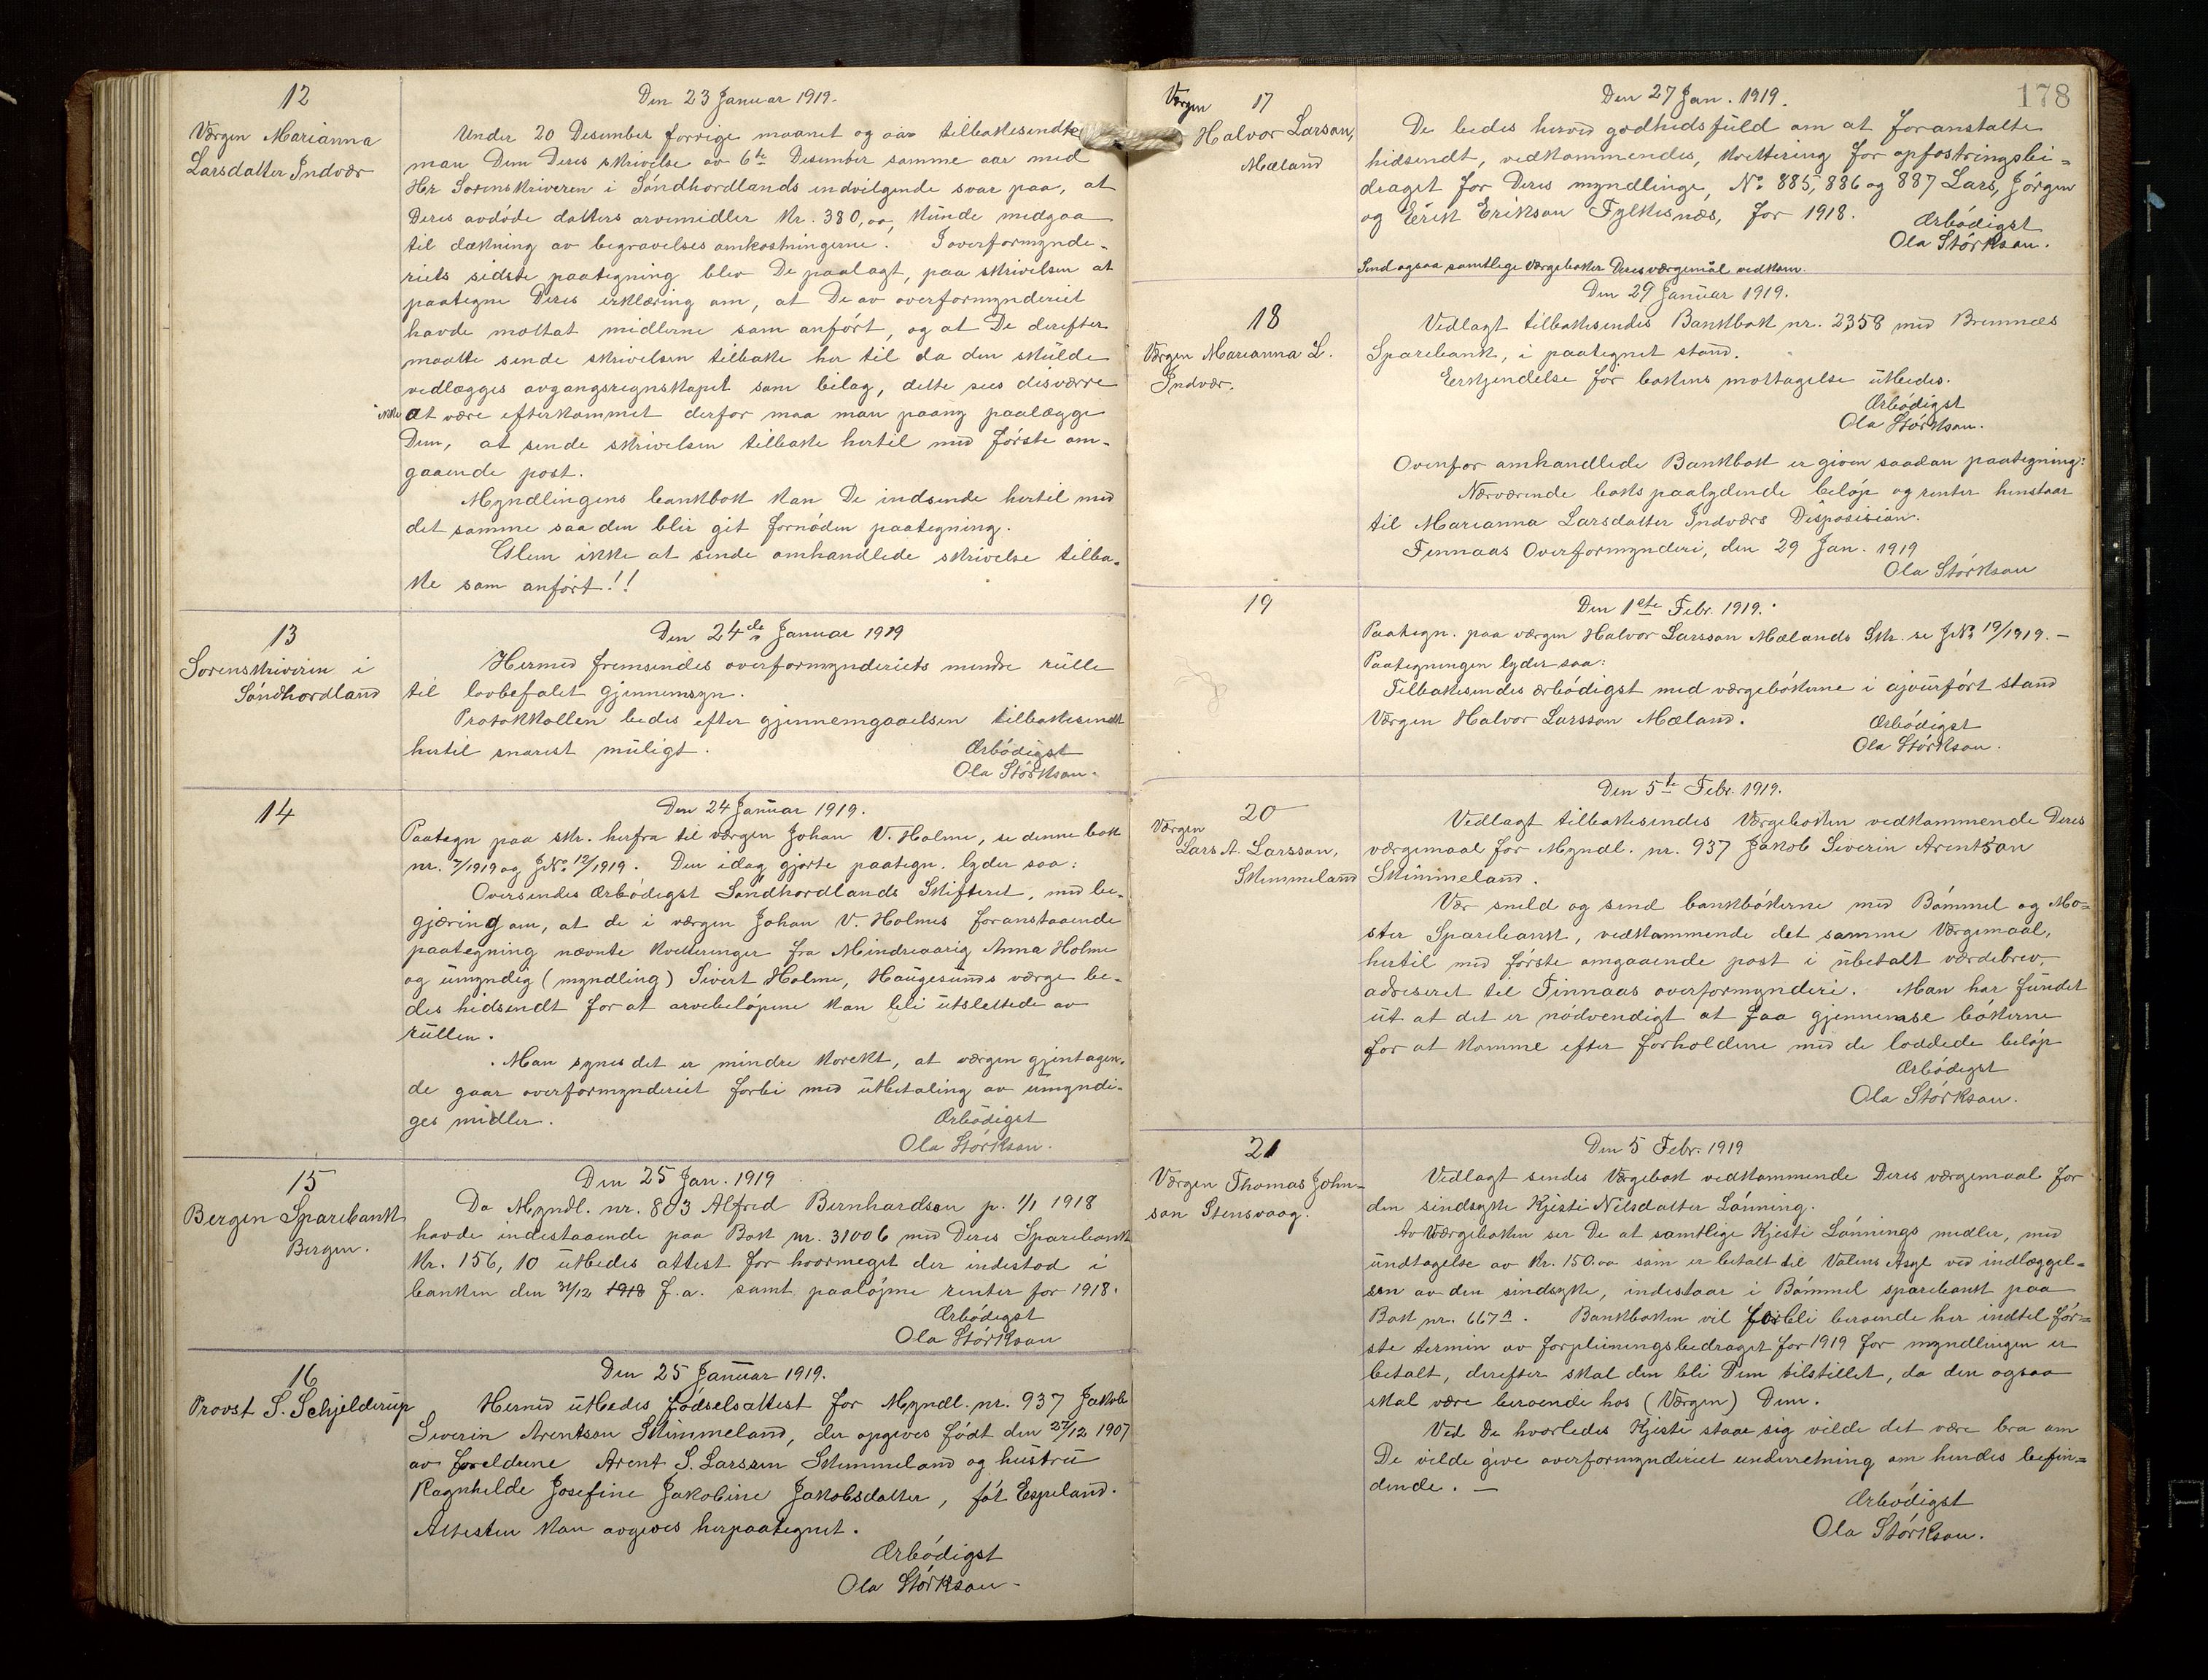 12
Værgen Marianna
Larsdatter Indvær
Den 23 Januar 1919.
Under 20 Desember forrige maanet og aar tilbakesendte
man Dem Deres skrivelse av 6te Desember samme aar med
Hr Sorenskriveren i Söndhordlands indvilgende svar paa, at
Deres avdöde datters arvemidler Kr. 380,00, kunde medgaa
til dækning av begravelsesomkostningerne. I overformynde-
riets sidste paategning blev De paalagt, paa skrivelsen at
paategne Deres erklæring om, at De av overformynderiet
havde mottat midlerne som anfört, og at De derefter
maatte sende skrivelsen tilbake her til da den skulde
vedlægges avgangsregnskapet som bilag, dette sees desværre
ikke at være efterkommet derfor maa man paany paalægge
Dem, at sende skrivelsen tilbake hertil med förste om-
gaaende post.
Myndlingens bankbok kan De indsende hertil med
det samme saa den blir git fornöden paategning.
Glem ikke at sende omhandlede skrivelse tilba-
ke som anfört!!
13
Sorenskriveren i
Söndhordland
Den 24de Januar 1919
Hermed fremsendes overformynderiets mindre rulle
til lovbefalet gjennemsyn.
Protokkollen bedes efter gjennemgaaelsen tilbakesendt
hertil snarest muligt.
Ærbödigst
Ola Störkson.
14
Den 24 Januar 1919.
Paategn paa skr. herfra til værgen Johan V. Holme, se denne bok
nr. 7/1919 og JNo. 12/1919. Den idag gjorte paategn. lyder saa:
Oversendes Ærbödigst Söndhordlands Skifteret, med be-
gjæring om, at de i værgen Johan V. Holmes foranstaaende
paategning nævnte kvitteringer fra Mindreaarig Anna Holme
og umyndig (myndling) Sivert Holme, Haugesunds værge be-
des hidsendt for at arvebelöpene kan bli utslettede av
rullen.
Man synes det er mindre korekt, at værgen gjentagen-
de gaar overformynderiet forbi med utbetaling av umyndi-
ges midler.
Ærbödigst
Ola Störkson.
15
Bergen Sparebank
Bergen.
Den 25 Jan. 1919
Da Myndl. nr. 803 Alfred Bernhardson p. 1/1 1918
havde indestaaende paa Bok nr. 31006 med Deres Sparebank
Kr. 156,10 utbedes attest for hvormeget der indestod i
banken den 31/12 1918 f.a. samt paalöpne renter for 1918.
Ærbödigst
Ola Störkson
16
Provst S. Schjelderup
Den 25 Januar 1919.
Hermed utbedes födselsattest for Myndl. nr. 937 Jakob
Severin Arentson Skimmeland, der opgives födt den 27/12 1907
av foreldrene Arent S. Larsson Skimmeland og hustru
Ragnhilde Josefine Jakobine Jakobsdatter, föt Espeland.
Attesten kan avgives herpaategnet.
Ærbödigst
Ola Störkson.
178
Værgen 17
Halvor Larson,
Mæland
Den 27 Jan. 1919.
De bedes herved godhedsfuld om at foranstalte
hidsendt, vedkommendes, kvittering for opfostringsbi-
draget for Deres myndlinge, No. 885, 886 og 887 Lars, Jörgen
og Erik Erikson Fylkesnæs, for 1918.
Ærbödigst
Ola Störkson.
Send ogsaa samtlige værgeböker Deres værgemål vedkom.
18
Værgen Marianna L.
Indvær.
Den 29 Januar 1919.
Vedlagt tilbakesendes Bankbok nr. 2358 med Bremnes
Sparebank, i paategnet stand.
Erkjendelse for bokens mottagelse utbedes.
Ærbödigst
Ola Störkson.
Ovenfor omhandlede Bankbok er given saadan paategning:
Nærværende boks paalydende belöp og renter henstaar
til Marianna Larsdatter Indværs Desposision.
Finnaas Overformynderi, den 29 Jan. 1919
Ola Störkson
19
Den 1ste Febr. 1919.
Paategn. paa værgen Halvor Larsson Mælands Skr. se JNo 19/1919. —
Paategningen lyder saa:
Tilbakesendes ærbödigst med værgebökerne i ajourfört stand
Værgen Halvor Larsson Mæland.
Ærbödigst
Ola Störkson.
20
Værgen
Lars A. Larsson,
Skimmeland
Den 5te Febr. 1919.
Vedlagt tilbakesendes Værgeboken vedkommende Deres
værgemaal for Myndl. nr. 937 Jakob Siverin Arentson
Skimmeland.
Vær sneld og send bankbökerne med Bömmel og Mo-
ster Sparebank, vedkommende det samme Værgemaal,
hertil med förste omgaaende post i ubetalt værdebrev,
adreseret til Finnaas overformynderi. Man har fundet
ut at det er nödvendigt at faa gjennemse bökerne
for at komme efter forholdene med de loddede belöp
Ærbödigst
Ola Störkson.
21
Værgen Thomas John-
son Stensvaag.
Den 5 Febr. 1919
Vedlagt sendes Værgebok vedkommende Deres værgemaal for
den sindsyke Kjesti Nilsdatter Lönning.
Av Værgeboken ser De at samtlige Kjesti Lönnings midler, med
undtagelse av Kr. 150.00 som er betalt til Valens Asyl ved indlæggel-
sen av den sindsyke, indestaar i Bömmel sparebank paa
Bok nr. 667A. Bankboken vil forbli beroende her indtil för-
ste termin av forpleiningsbedraget for 1919 for myndlingen er
betalt, derefter skal den bli Dem tilstillet, da den ogsaa
skal være beroende hos (Værgen) Dem.
Ved De hvorledes Kjesti staar sig vilde det være bra om
De vilde give overformynderiet underretning om hendes befin-
dende. —
Ærbödigst
Ola Störkson.